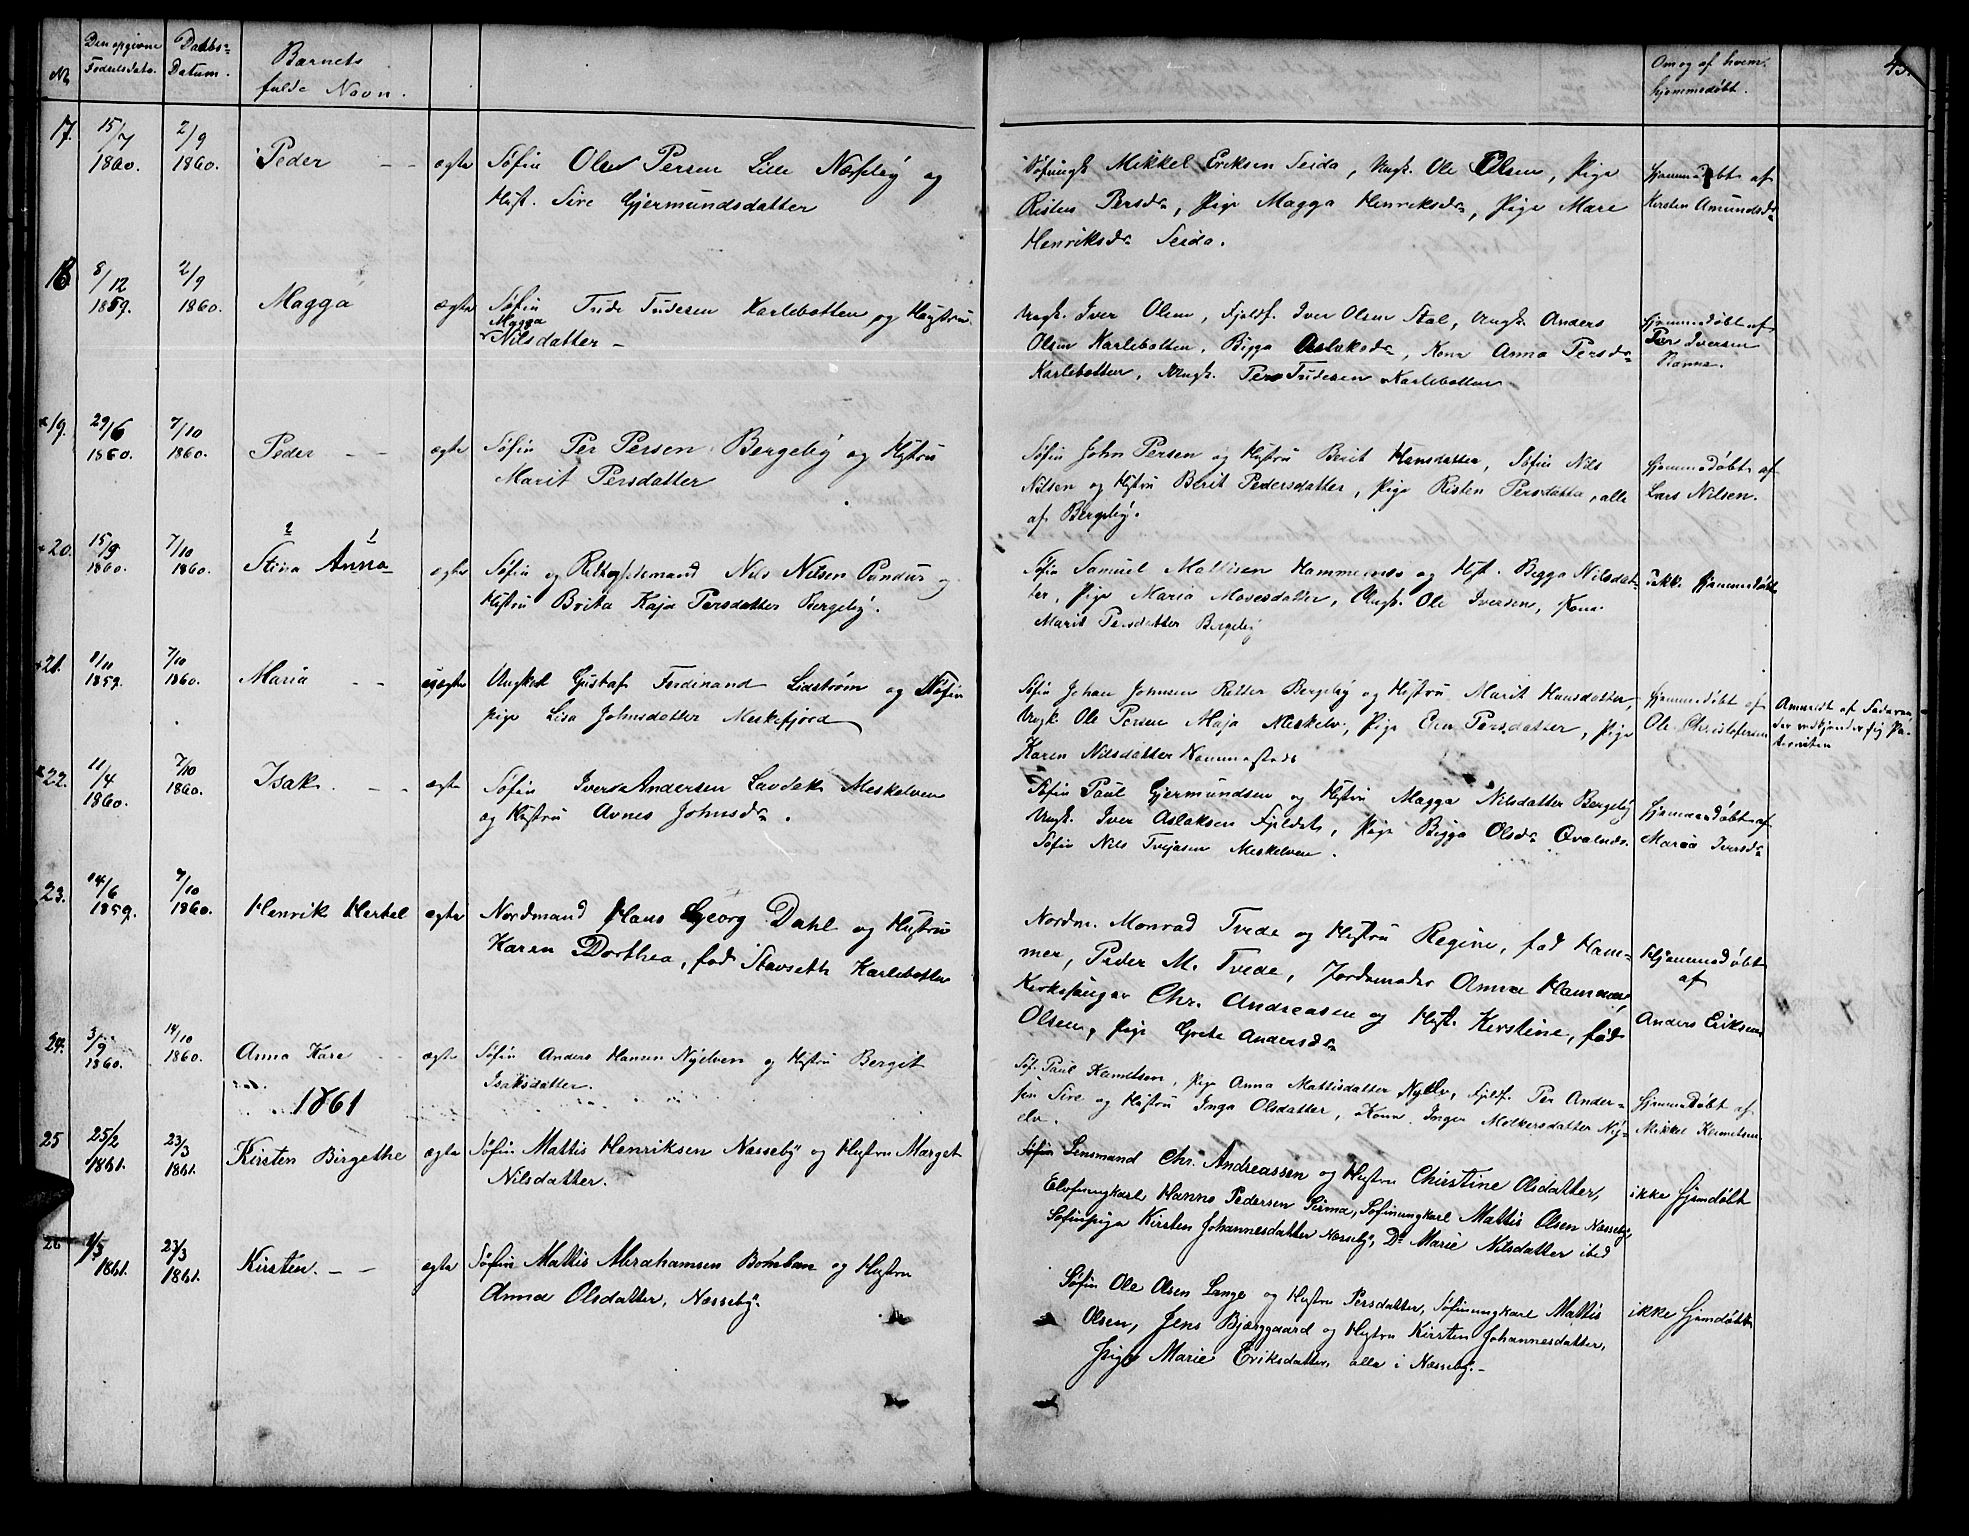 No. Den opgivne Fødselsdato. Daabs-Datum. Barnets fulde Navn. Om og af hvem hjemmedøbt. 43.
17. 15/7 1860. 2/9 1860. Peder - - ægte Søfin Ole Persen Lille Næsseby og
Hust. Sire Gjermundsdatter
Søfungk. Mikkel Eriksen Seida, Ungk. Ole Olsen, Pige
Risten Persdr, Pige Magga Henriksdr, Pige Mare
Henriksdr Seida.
Hjemmedøbt af
Kirsten Amundsdr
18 8/12 1859. 2/9 1860. Magga ægte Søfin Tude Tudesen Karlebotten og Hustru
Magga
Nilsdatter -
Ungk. Iver Olsen, Fjeldf. Iver Olsen Stal, Ungk. Anders
Olsen Karlebotten, Bigga Aslaksdr, Kone Anna Persdr
Karlebotten, Ungk. Per Tudesen Karlebotten
Hjemmedøbt af
Per Iversen
Nanna.
19. 29/6 1860. 7/10 1860. Peder - - ægte Søfin Per Persen Bergeby og Hustru
Marit Persdatter
Søfin John Persen og Hustru Berit Hansdatter, Søfin Nils
Nilsen og Hustru Berit Pedersdatter, Pige Risten Persdatter, alle
af Bergeby.
Hjemmedøbt af
Lars Nilsen.
20. 15/9 1860. 7/10 1860. 2 1
Stina Anna ægte Søfin og Retteslemand Nils Nilsen Pundus og
Hustru Brita Kaja Persdatter Bergeby.
Søfin Samuel Mattisen Hammernes og Hust. Bigga Nilsdat-
ter, Pige Maria Movesdatter, Ungk. Ole Iversen, Kone
Marit Persdatter Bergeby
Ikke Hjemmedøbt
21. 1/10 1859. 7/10 1860. Maria - - uægte Ungkarl Gustaf Ferdinand Lidstrøm og Søfin
pige Lisa Johnsdatter Meskefjord
Søfin Johan Johnsen Ratter Bergeby og Hustru Marit Hansdatter,
Ungk. Ole Persen Maja Meskelv, Pige Elen Persdatter, Pige
Karen Nilsdatter Nammesteds
Hjemmedøbt af
Ole Christofersen
Anmeldt af Faderen,
der vedkjender sig Pa-
terniten
22. 11/4 1860. 7/10 1860. Isak - - ægte Søfin Iver Andersen Lavdak Meskelven
og Hustru Avnes Johnsdr.
Søfin Paul Gjermundsen og Hustru Magga Nilsdatter Bergeby
Ungk. Iver Aslaksen Fjeldet, Pige Bigga Olsdr Qvalnes.
Søfin Nils Tvejasen Meskelven.
Hjemmedøbt af
Maria Iversdr
23. 14/6 1859. 7/10 1860. Henrik Hertel ægte Nordmand Hans Georg Dahl og Hustru
Karen Dorthea, fød Stavseth Karlebotten
Nordm. Monrad Tvede og Hustru Regine, fød Ham-
mer, Peder M. Tvede, Jordemoder Anna Hammer,
Kirkesanger Chr. Andreasen og Hust. Kerstine, fød
Olsen, Pige Grete Andersdr
Hjemmedøbt
af
Anders Eriksen
24. 3/9 1860. 14/10 1860. Anna Kare ægte Søfin Anders Hansen Nyelven og Hustru Bergit
Isaksdatter.
Søf. Paul Klemetsen, Pige Anna Mattisdatter Nyelv, Fjeldf. Per Ander-
sen Sire og Hustru Inga Olsdatter, Kone Inger Melkersdatter Ny-
elv.
Hjemmedøbt af
Mikkel Klemetsen
1861
25 25/2 1861. 23/3 1861. Kirsten Birgethe ægte Søfin Mattis Henriksen Næsseby og Hustru Marget
Nilsdatter.
Søfin Lensmand Chr. Andreassen og Hustru Christine Olsdatter,
Elvfinungkarl Hanno Pedersen Sirma, Søfinungkarl Mattis Olsen Næsseby,
Søfinpige Kirsten Johannesdatter Næsseby, Do Marie Nilsdatter ibid
ikke Hjemdøbt
26 1/3 1861. 23/3 1861. Kirsten. - - ægte Søfin Mattis Abrahamsen Bomban og Hustru
Anna Olsdatter, Næsseby.
Søfin Ole Olsen Lange og Hustru Persdatter, Søfinungkarl Mattis
Olsen, Jens Bjerggaard og Hustru Kirsten Johannesdatter,
Pige Marie Eriksdatter, alle i Næsseby. -
ikke Hjemdøbt